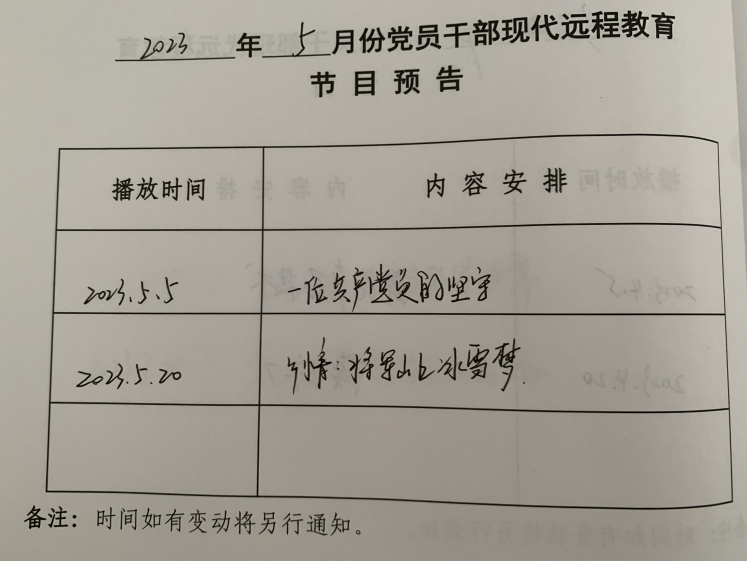 2023 年 5 月份党员干部现代远程教育
节目预告
播放时间 内容安排
2023.5.5 一位共产党员的坚守
2023.5.20 乡情:将军山上冰雪梦.
备注:时间如有变动将另行通知。